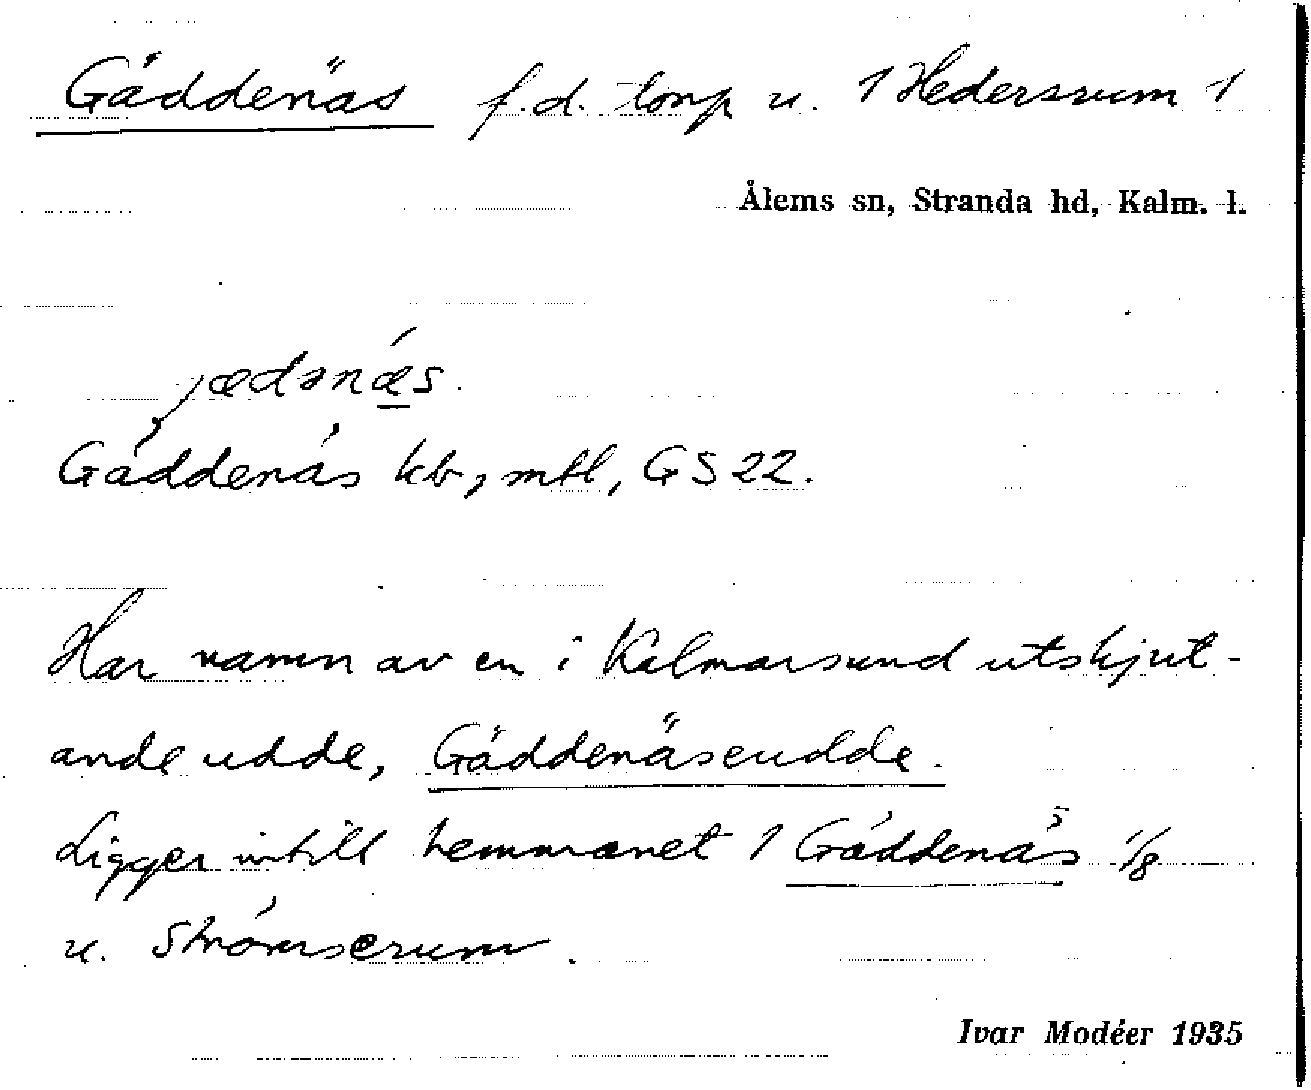 Gäddenäs f.d. torp u. 1 Hedersrum 1
Ålems sn, Stranda hd, Kalm. l.
jædənǽ̠s.
Gäddenäs kb, mtl, GS 22.
Har namn av en i Kalmarsund utskjut-
ande udde, Gäddenäseudde.
Ligger intill hemmanet 1 Gäddenäs 1/8
u. Strömserum.
Ivar Modéer 1935